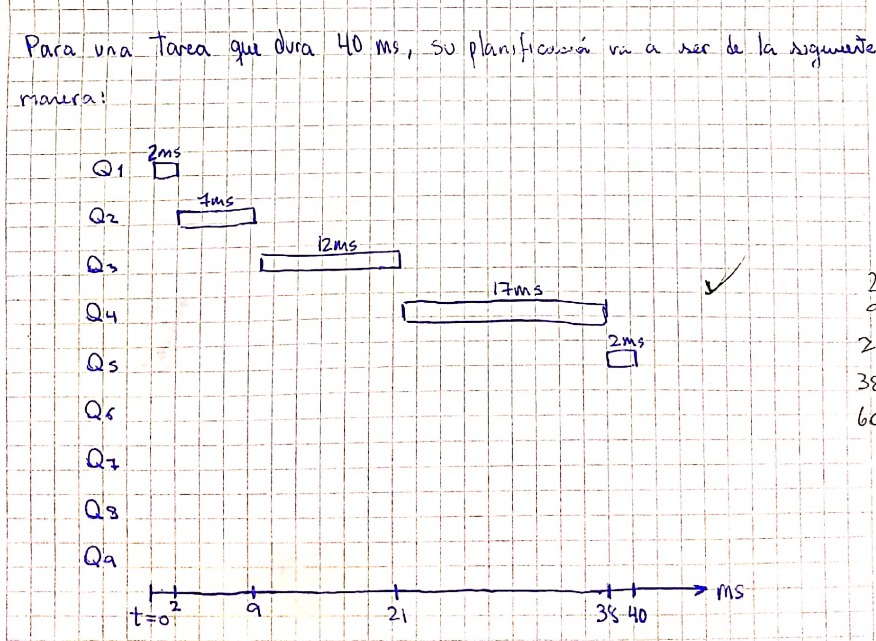 Para una Tarea que dura 40 ms, su planificación va a ser de la siguiente
manera:
2ms
Q1
7ms
Q2
12ms
Q3
17ms
Q4
2ms
Q5
Q6
Q7
Q8
Q9
t=0 2 9 21 38 40 ms
2
2
38
60